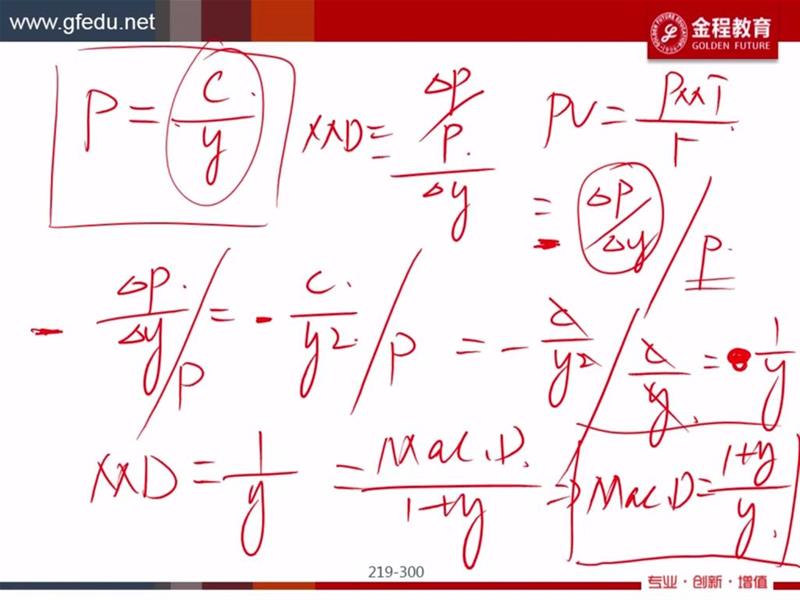 www.gfedu.net
金程教育
GOLDEN FUTURE
P = C/y
MD = (ΔP/P)/Δy
PV = PMT/r
= - (ΔP/Δy)/P
- (ΔP/Δy)/P = - (C/y2)/P = - (C/y2)/(C/y) = 1/y
MD = 1/y = Mac.D./(1+y) ⇒ Mac.D = (1+y)/y
219-300
专业·创新·增值